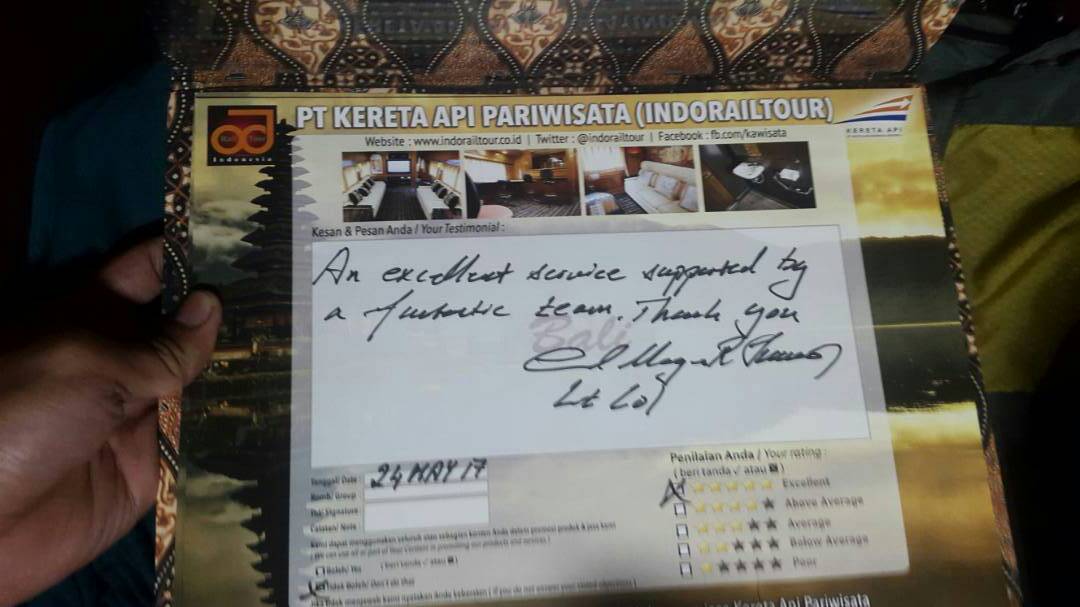 PT KERETA API PARIWISATA (INDORAILTOUR)
KERETA API
Indonesia
Website : www.indorailtour.co.id | Twitter : @indorailtour | Facebook : fb.com/kawisata
Kesan & Pesan Anda / Your Testimonial :
An excellent service supported by
a fantastic team. Thank you
Bali
Lt Col
Tanggal/ Date :
24 MAY 17
Romb/ Group
Ttd/ Signature
Catatan/ Note
Kami dapat menggunakan seluruh atau sebagian konten Anda dalam promosi produk & jasa kami
( We can use all or part of Your Content in promoting our products and services )
Boleh/ Yes ( beri tanda √ atau )
Tidak Boleh/ Don't do that
Penilaian Anda / Your rating :
( beri tanda √ atau )
Excellent
Above Average
Average
Below Average
Poor
Kereta Api Pariwisata